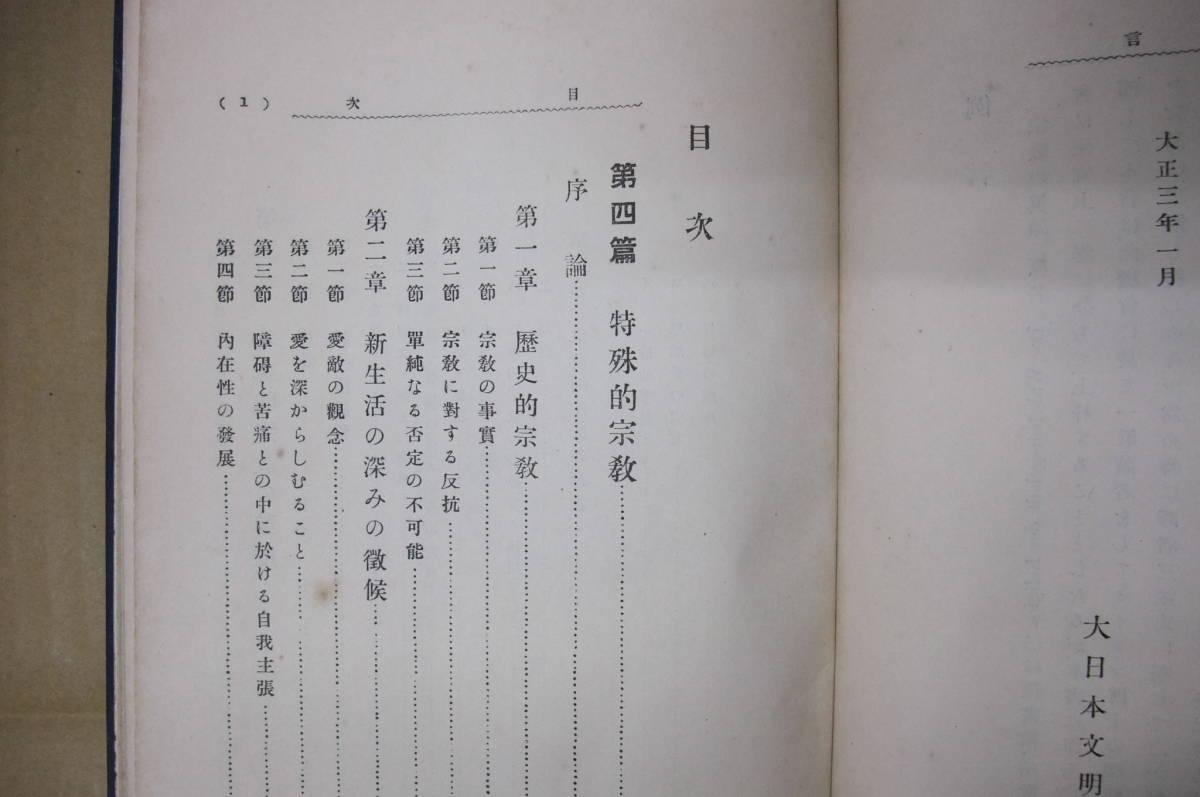 言
大正三年一月
大日本文明
目次
(1)
目次
第四篇 特殊的宗教
序論
第一章 歷史的宗教
第一節 宗教の事實
第二節 宗教に對する反抗
第三節 單純なる否定の不可能
第二章 新生活の深みの徵候
第一節 愛敵の觀念
第二節 愛を深からしむること
第三節 障碍と苦痛との中に於ける自我主張
第四節 內在性の發展